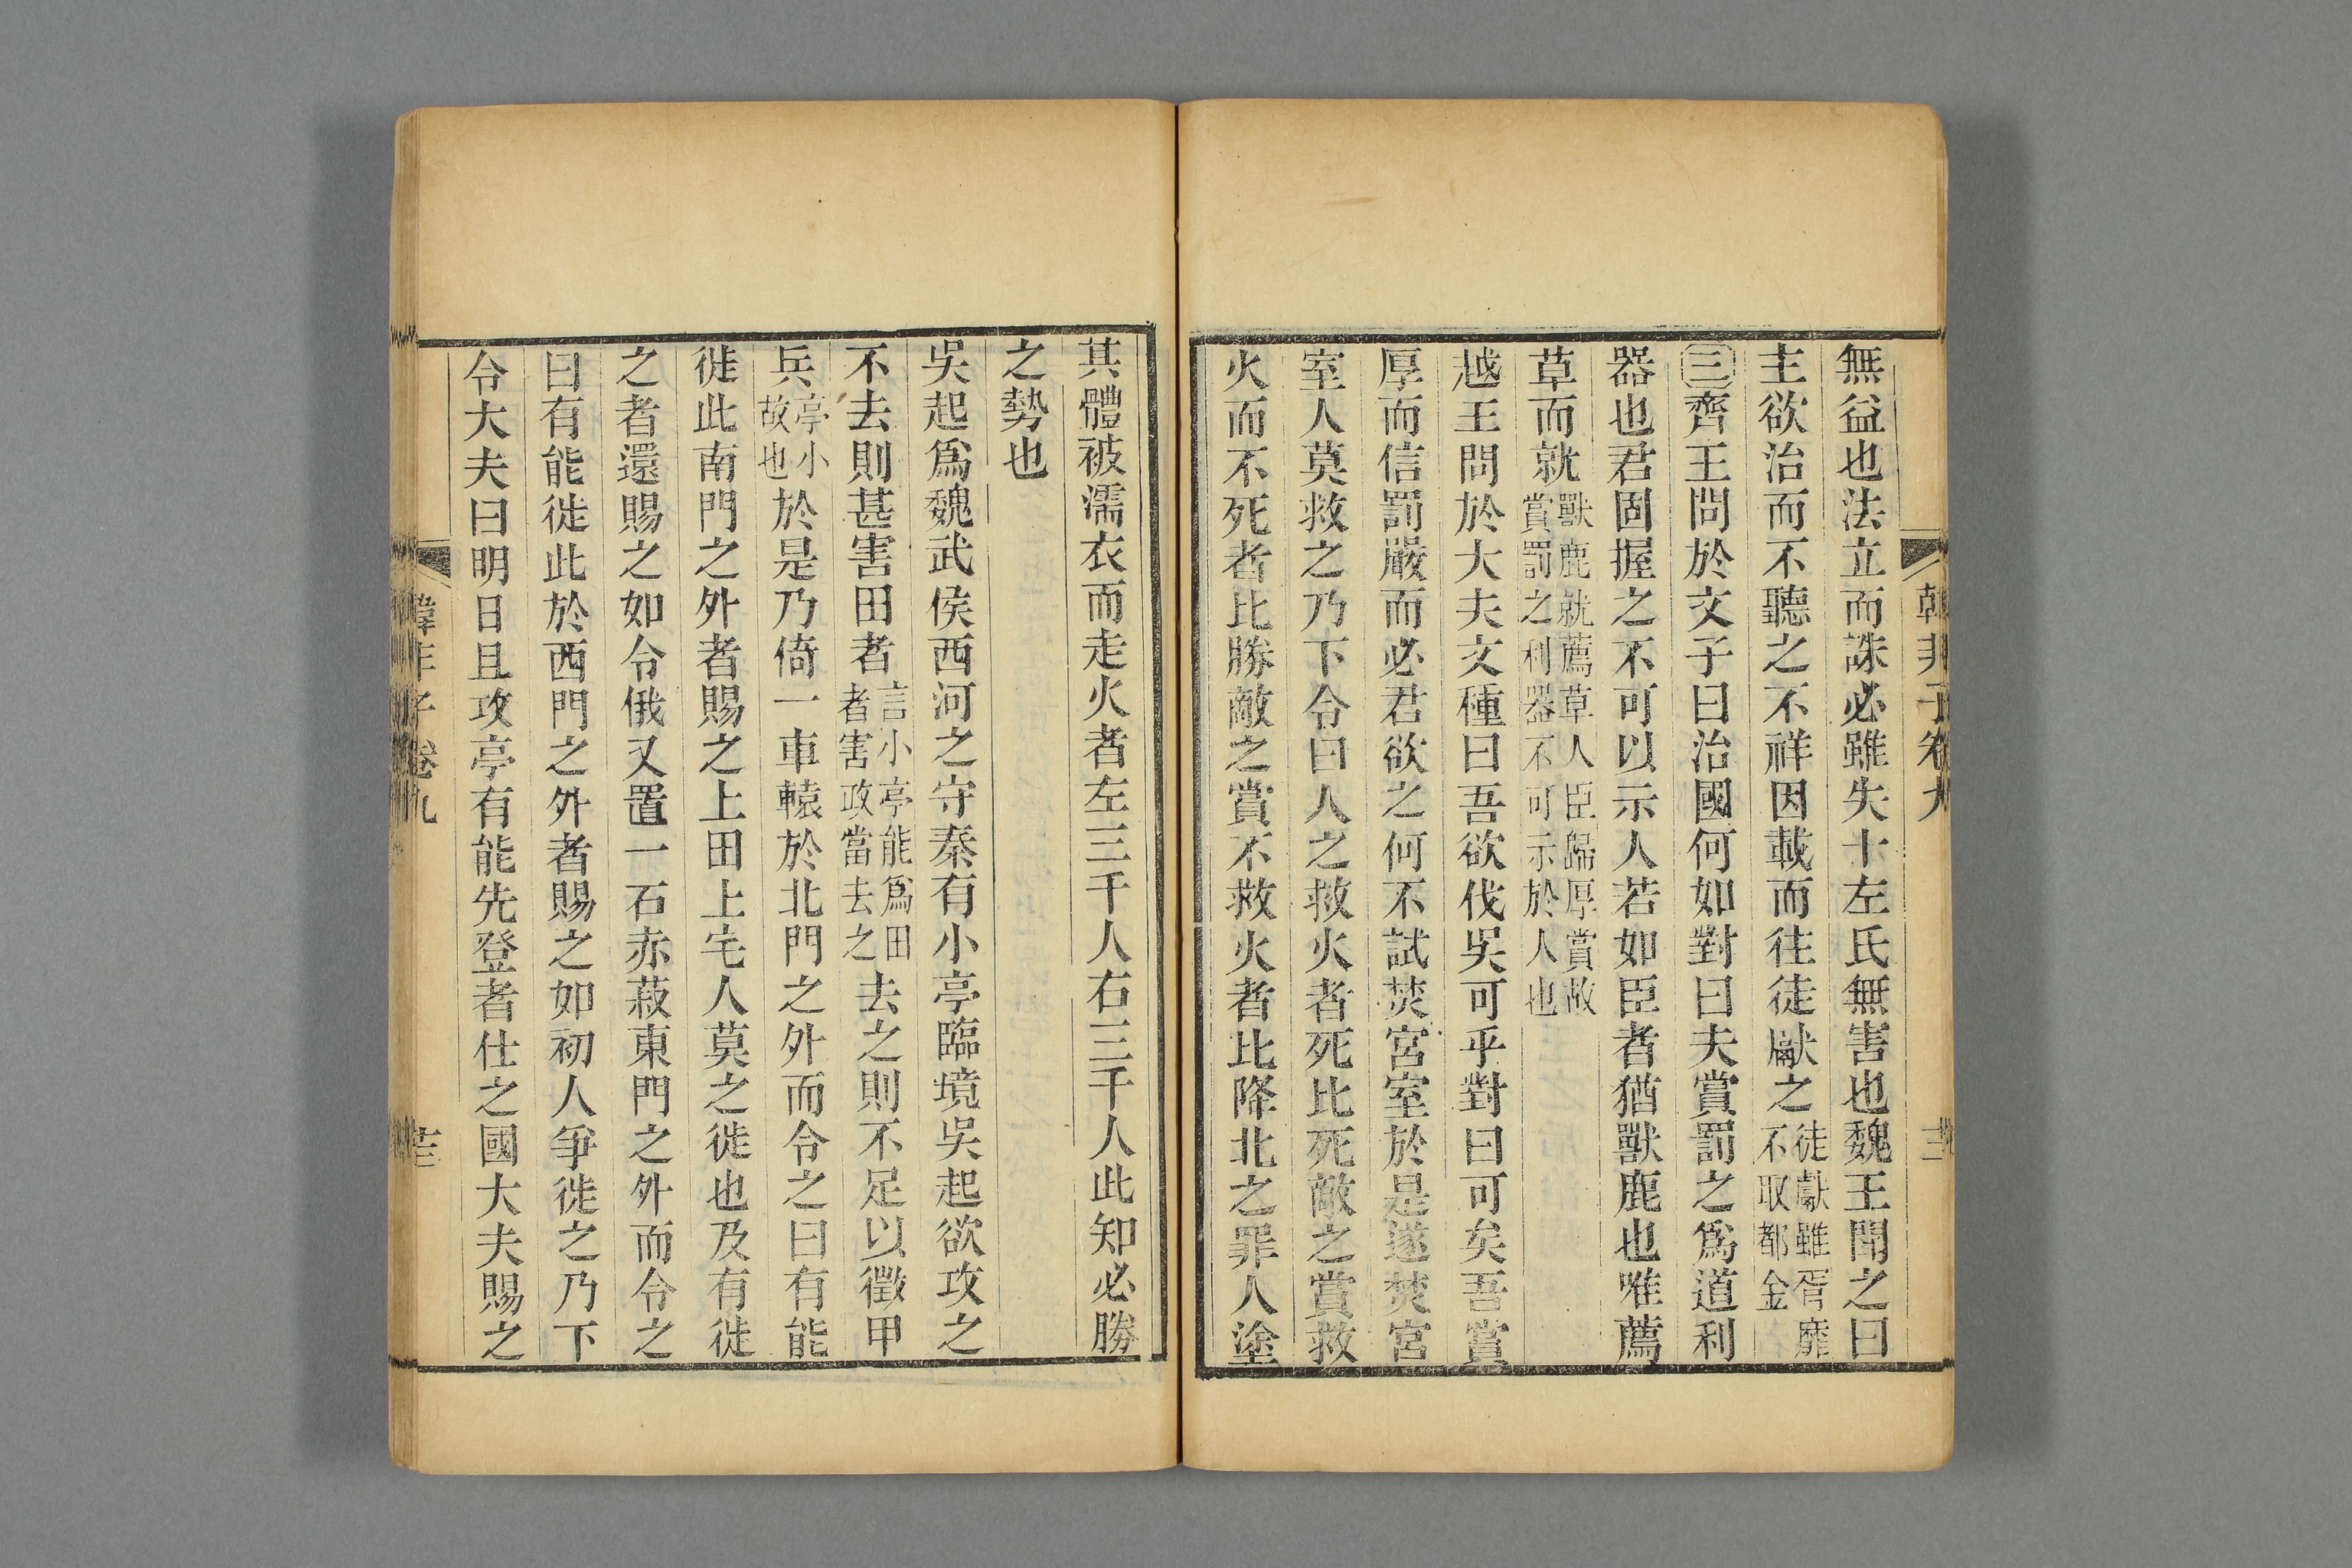 韓非子卷九
無益也法立而誅必雖失十左氏無害也魏王聞之曰
主欲治而不聽之不祥因載而往徒獻之徒獻雖胥靡不取都金
三齊王問於文子曰治國何如對曰夫賞罰之爲道利
器也君固握之不可以示人若如臣者猶獸鹿也唯薦
草而就獸鹿就薦草人臣歸厚賞故賞罰之利器不可示於人也
越王問於大夫文種曰吾欲伐吳可乎對曰可矣吾賞
厚而信罰嚴而必君欲之何不試焚宮室於是遂焚宮
室人莫救之乃下令曰人之救火者死比死敵之賞救
火而不死者比勝敵之賞不救火者比降北之罪人塗
其體被濡衣而走火者左三千人右三千人此知必勝
之勢也
吳起爲魏武侯西河之守秦有小亭臨境吳起欲攻之
不去則甚害田者言小亭能爲田者害政當去之去之則不足以徵甲
兵亭小小故也於是乃倚一車轅於北門之外而令之曰有能
徙此南門之外者賜之上田上宅人莫之徙也及有徙
之者還賜之如令俄又置一石赤菽東門之外而令之
曰有能徙此於西門之外者賜之如初人爭徙之乃下
令大夫曰明日且攻亭有能先登者仕之國大夫賜之
韓非子卷九